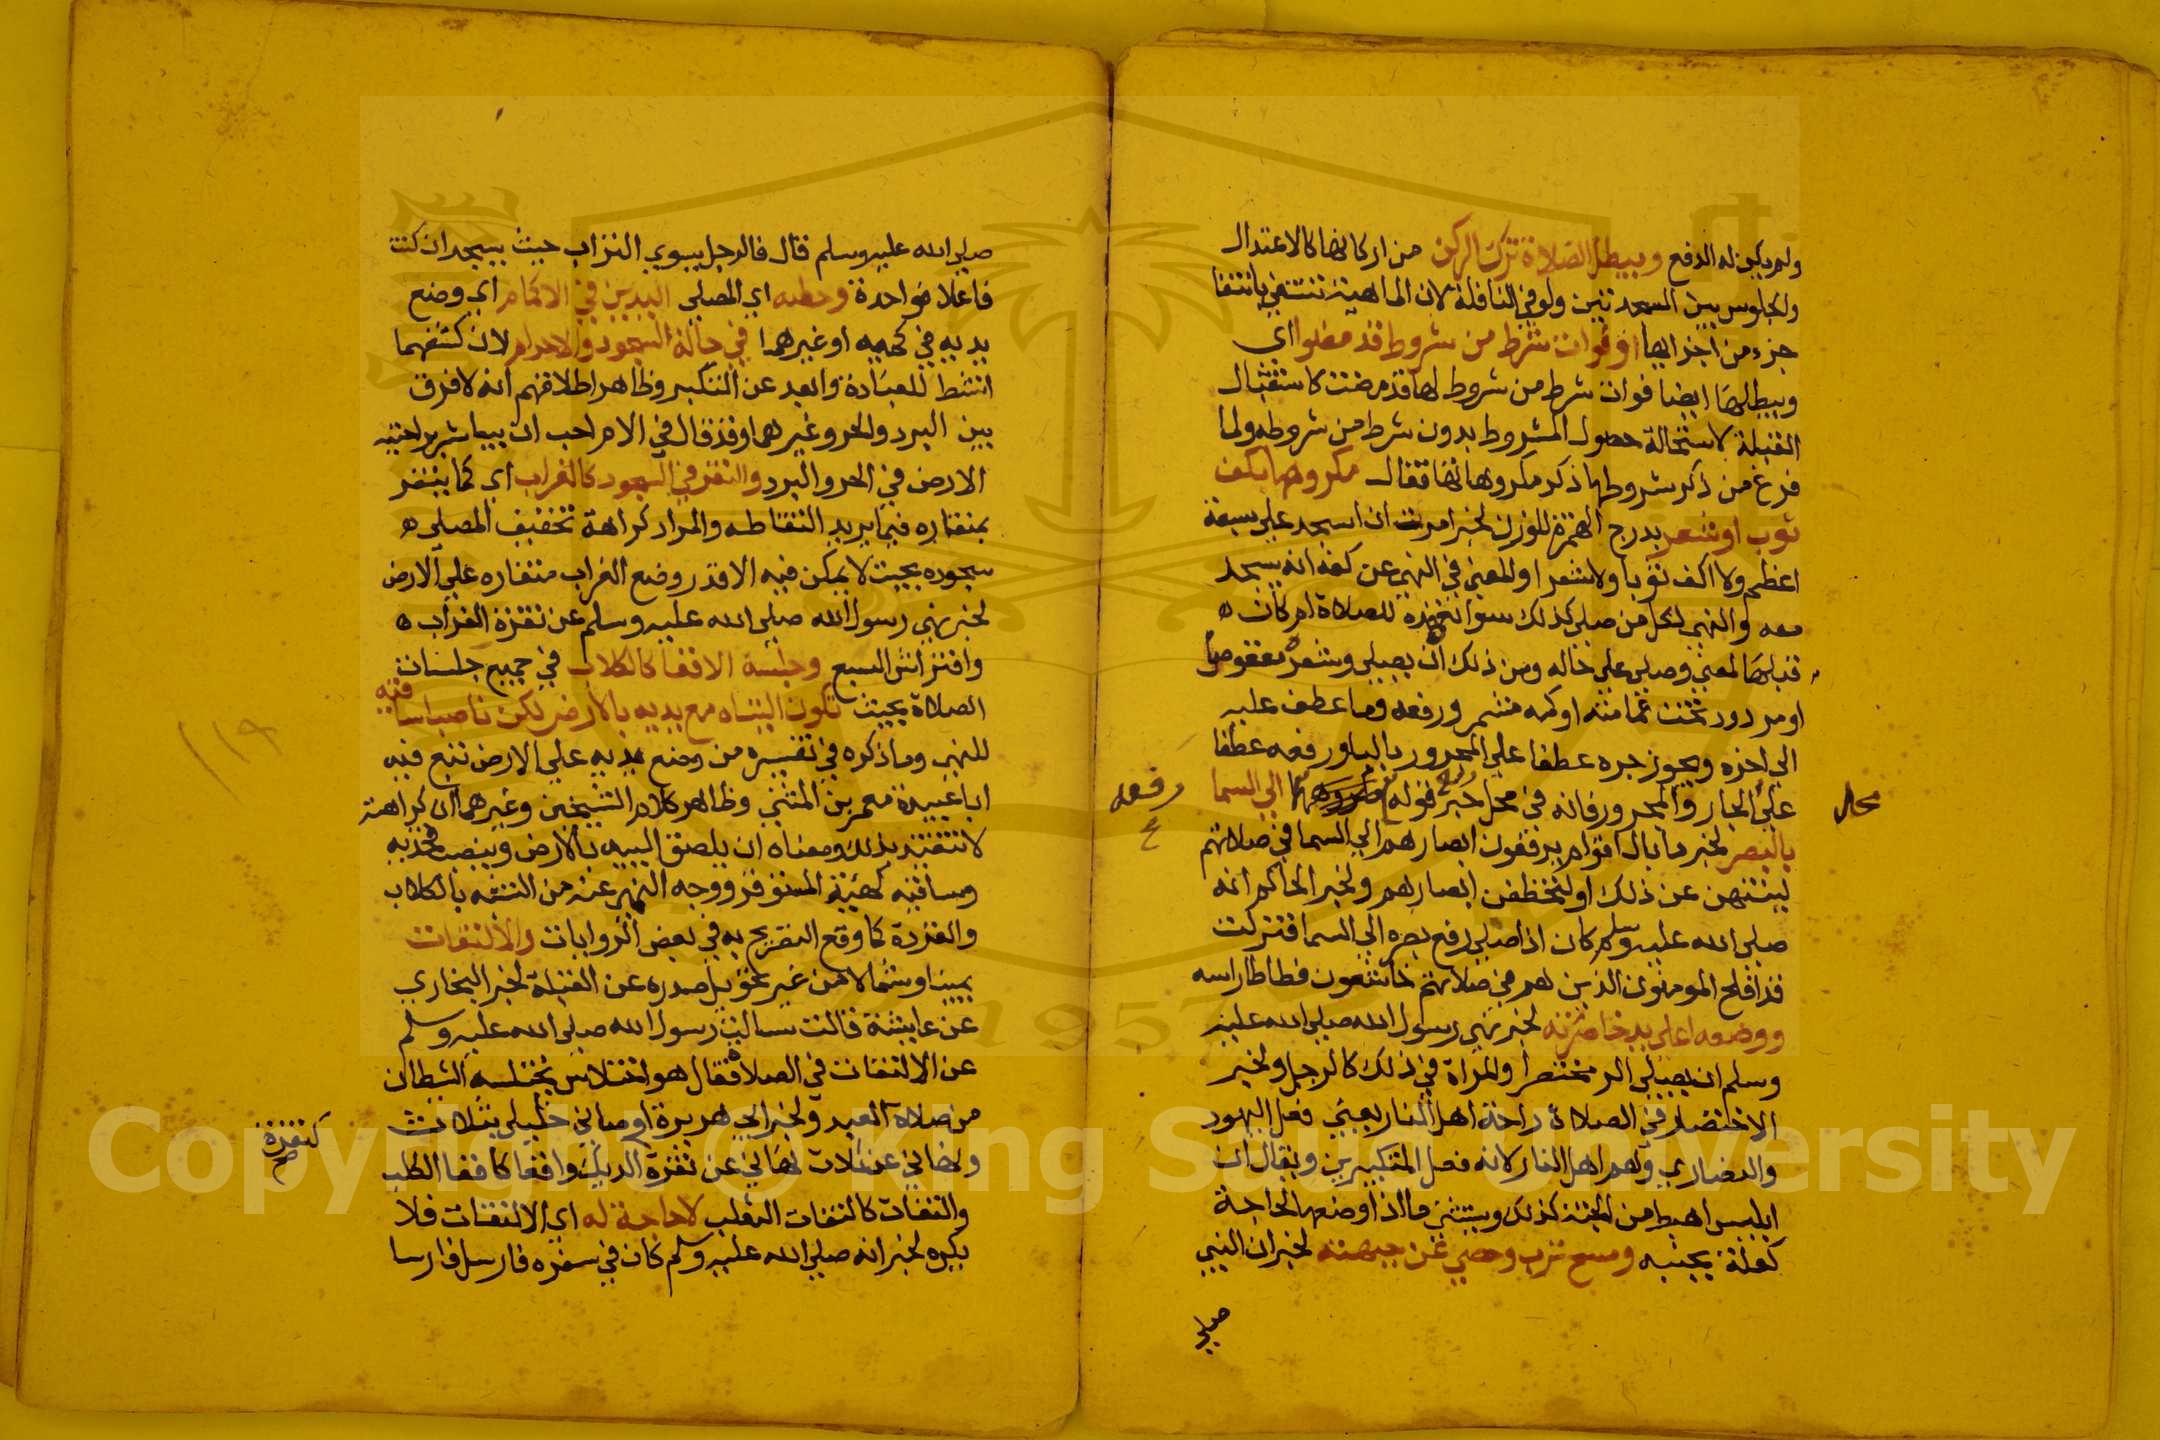 ولم يكن له الدفع ويبطل الصلاة ترك الركن من اركانها كالاعتدال
والجلوس بين السجدتين ولو في النافلة لان الماهية تنتفي بانتفا
جزء من اجزايها او فوات شرط من شروط قد مضوا اي
ويبطلها ايضا فوات شرط من شروط لها قد مضت كاستقبال
القبلة لاستحالة حصول المشروط بدون شرط من شروطه ولما
فرغ من ذكر شروطها ذكر مكروهاتها فقال مكروهها بكف
ثوب او شعر بدرج الهمزة للوزن لخبر امرت ان اسجد على سبعة
اعظم ولا اكف ثوبا ولا شعرا والمعنى في النهي عن كفه انه يسجد
معه والنهي لكل من صلى كذلك سوا تعمده للصلاة ام كان ه
قبلها لمعنى وصلى على حاله ومن ذلك ان يصلي وشعره معقوص
او مردود تحت عمامته او كمه مشمر ورفعه وما عطف عليه
الى اخره ويجوز جره عطفا على المجرور بالبا ورفعه عطفا
على الجار والمجرور فانه في محل خبر قوله الى السما
محل
رفعه
بالبصر لخبر ما بال اقوام يرفعون ابصارهم الى السما في صلاتهم
لينتهن عن ذلك او لتخطفن ابصارهم ولخبر الحاكم انه
صلى الله عليه وسلم كان اذا صلى رفع بصره الى السما فنزلت
قد افلح المومنون الذين هم في صلاتهم خاشعون فطاطا راسه
ووضعه على يد خاصرته لخبر نهى رسول الله صلى الله عليه
وسلم ان يصلي الرجل مختصرا والمراة في ذلك كالرجل ولخبر
الاختصار في الصلاة راحة اهل النار يعني فعل اليهود
والنصارى وهم اهل النار لانه فعل المتكبرين ويقال ان
ابليس اهبط من الجنة كذلك ويستثنى ما اذا وضعها لحاجة
كعلة بجنبه ومسح ترب وحصى عن جبهته لخبر ان النبي
صلى
صلى الله عليه وسلم قال في الرجل يسوي التراب حيث يسجد ان كنت
فاعلا فواحدة وحطه اي المصلي اليدين في الاكمام اي وضع
يديه في كميه او غيرهما في حالة السجود والاحرام لان كشفهما
انشط للعبادة وابعد عن التكبر وظاهر اطلاقهم انه لا فرق
بين البرد والحر وغيرهما وقد قال في الام احب ان يباشر براحتيه
الارض في الحر والبرد والنقر في السجود كالغراب اي كما ينقر
بمنقاره فيما يريد التقاطه والمراد كراهة تخفيف المصلي ه
سجوده بحيث لا يمكن فيه الا قدر وضع الغراب منقاره على الارض
لخبر نهى رسول الله صلى الله عليه وسلم عن نقرة الغراب ه
وافتراش السبع وجلسة الاقعا كالكلاب في جميع جلسات
الصلاة بحيث تكون اليتاه مع يديه بالارض لكن ناصبا ساقيه
للنهي وما ذكره في تفسيره من وضع يديه على الارض تبع فيه
ابا عبيدة معمر بن المثنى وظاهر كلام الشيخين وغيرهما ان كراهته
لا تتقيد بذلك ومعناه ان يلصق الييه بالارض وينصب فخذيه
وساقيه كهيئة المستوفز ووجه النهي عنه من التشبه بالكلاب
والقردة كما وقع التصريح به في بعض الروايات والالتفات
يمينا وشمالا من غير تحويل صدره عن القبلة لخبر البخاري
عن عايشة قالت سالت رسول الله صلى الله عليه وسلم
عن الالتفات في الصلاة فقال هو اختلاس يختلسه الشيطان
من صلاة العبد ولخبر ابي هريرة اوصاني خليلي بثلاث
ونهاني عن ثلاث نهاني عن نقرة الديك واقعا كاقعا الكلب
كنقرة
صح
والتفات كالتفات الثعلب لا حاجة له اي الالتفات فلا
يكره لخبر انه صلى الله عليه وسلم كان في سفره فارسل فارسا
١١٩
Copyright © King Saud University
1957